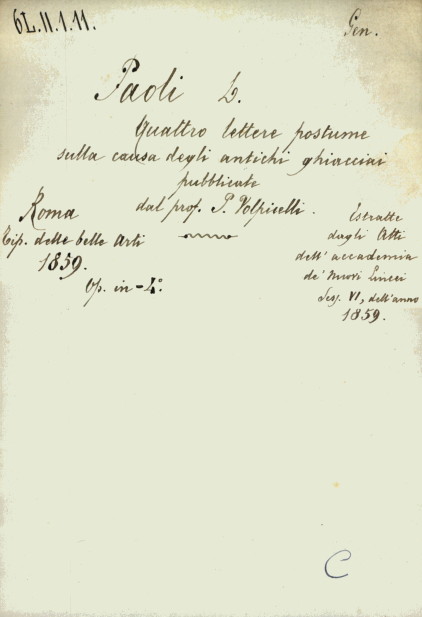 6L.II.1.11.
Gen.
Paoli L.
Quattro lettere postume
sulla causa degli antichi ghiacciai
pubblicate
dal prof. P. Volpicelli.
Roma
Tip. delle belle Arti
1859.
Op. in-4º.
Estratte
dagli Atti
dell'accademia
de' Nuovi Lincei
Sess. VI, dell'anno
1859.
C